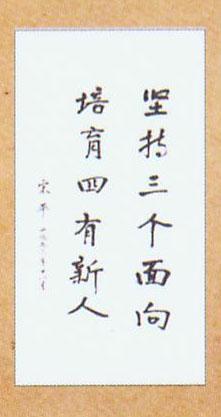 坚持三个面向
培育四有新人
宋平